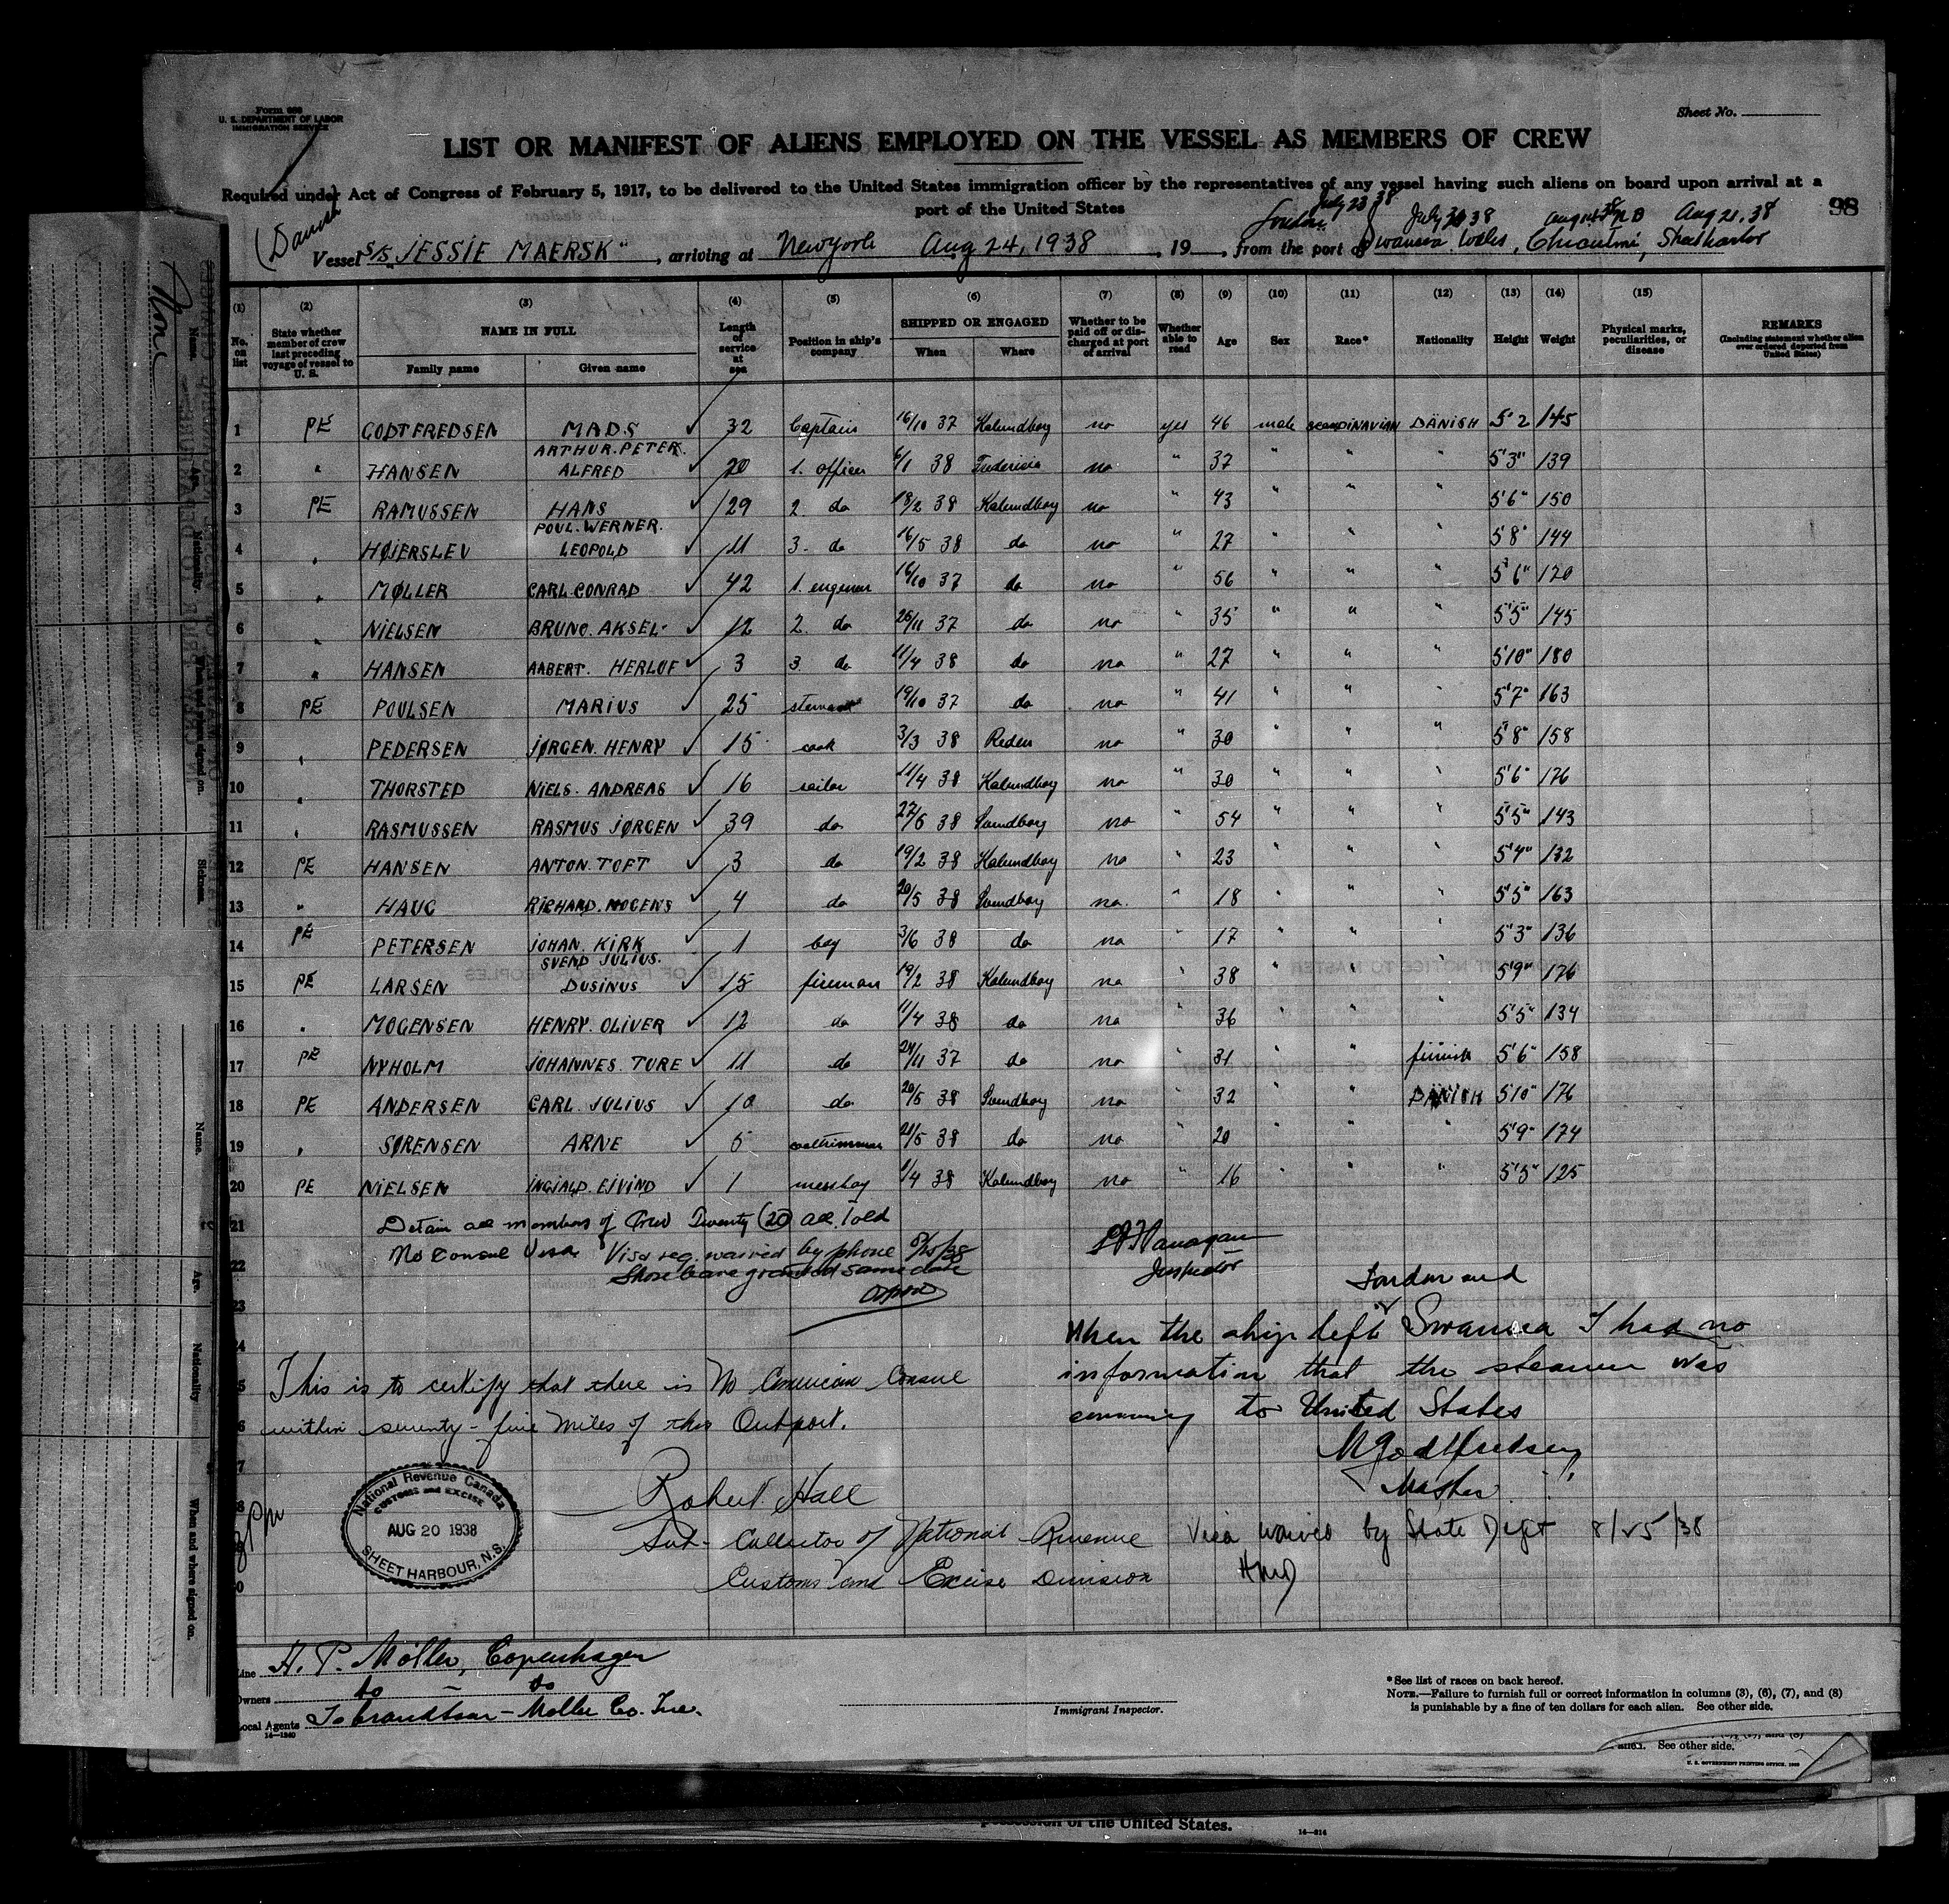 Form 689
U. S. DEPARTMENT OF LABOR
IMMIGRATION SERVICE
Sheet No.
LIST OR MANIFEST OF ALIENS EMPLOYED ON THE VESSEL AS MEMBERS OF CREW
Required under Act of Congress of February 5, 1917, to be delivered to the United States immigration officer by the representatives of any vessel having such aliens on board upon arrival at a
port of the United States
98
London July 23 38 July 30 38 Aug 21.38
(Danish
Vessel S/S "JESSIE MAERSK", arriving at New York Aug 24, 1938, 19, from the port of Swansea Wales, Chicoutimi, Sheet harbor
(1) (2) (3) (4) (5) (6) (7) (8) (9) (10) (11) (12) (13) (14) (15)
No. on list State whether member of crew last preceding voyage of vessel to U. S. NAME IN FULL Family name Given name Length of service at sea Position in ship's company SHIPPED OR ENGAGED When Where Whether to be paid off or discharged at port of arrival Whether able to read Age Sex Race* Nationality Height Weight Physical marks, peculiarities, or disease REMARKS (Including statement whether alien ever ordered deported from United States)
1 PE GODTFREDSEN MADS 32 Captain 16/10 37 Kalundborg no yes 46 male SCANDINAVIAN DANISH 5'2 145
2 " HANSEN ARTHUR. PETER. ALFRED 20 1. officer 6/1 38 Fredericia no " 37 " " " 5'3" 139
3 PE RAMUSSEN HANS 29 2. do 18/2 38 Kalundborg no " 43 " " " 5'6" 150
4 " HØJERSLEV POUL. WERNER. LEOPOLD 11 3. do 16/5 38 do no " 27 " " " 5'8" 144
5 " MØLLER CARL CONRAD 42 1. engineer 16/10 37 do no " 56 " " " 5'6" 170
6 " NIELSEN BRUNO. AKSEL 12 2. do 26/11 37 do no " 35 " " " 5'5" 145
7 " HANSEN AABERT. HERLUF 3 3 do 11/4 38 do no " 27 " " " 5'10" 180
8 PE POULSEN MARIUS 25 steward 19/10 37 do no " 41 " " " 5'7" 163
9 " PEDERSEN JØRGEN. HENRY 15 cook 3/3 38 no " 30 " " " 5'8" 158
10 " THORSTED NIELS. ANDREAS 16 sailor 11/4 38 Kalundborg no " 30 " " " 5'6" 176
11 " RASMUSSEN RASMUS JØRGEN 39 do 27/6 38 Svendborg no " 54 " " " 5'5" 143
12 PE HANSEN ANTON. TOFT 3 do 19/2 38 Kalundborg no " 23 " " " 5'4" 132
13 " HAUG RICHARD. MOGENS 4 do 20/5 38 Svendborg no. " 18 " " " 5'5" 163
14 PE PETERSEN JOHAN. KIRK 1 boy 3/6 38 do no " 17 " " " 5'3" 136
15 PE LARSEN SVEND JULIUS. DUSINUS 15 fireman 19/2 38 Kalundborg no " 38 " " " 5'9" 176
16 " MOGENSEN HENRY. OLIVER 12 do 11/4 38 do no " 36 " " " 5'5" 134
17 PE NYHOLM JOHANNES. TURE 11 do 24/11 37 do no " 31 " " finnish 5'6" 158
18 PE ANDERSEN CARL. JULIUS 10 do 20/5 38 Svendborg no " 32 " " DANISH 5'10" 176
19 " SØRENSEN ARNE 5 coaltrimmer 21/5 38 do no " 20 " " " 5'9" 174
20 PE NIELSEN INGJALD. EJVIND 1 messboy 1/4 38 Kalundborg no " 16 " " " 5'5" 125
21 Detain all members of Crew Twenty (20) all told
22 No Consul Visa Visa req. waived by phone 8/25/38
Shore leave granted same date
Inspector
London and
When the ship left Swansea I had no
information that the steamer was
comming to United States
MGodtfredsen
Master
This is to certify that there is No American Consul
within seventy-five miles of this Outport.
Robert Hall
Sub-Collector of National Revenue
Customs and Excise Division
National Revenue Canada
CUSTOMS and EXCISE
AUG 20 1938
SHEET HARBOUR, N.S.
Visa waived by State Dept 8/25/38
Line A. P. Möller, Copenhagen
Owners do - do
Local Agents Isbrandtsen-Moller Co. Inc.
14—1240
Immigrant Inspector.
*See list of races on back hereof.
NOTE.—Failure to furnish full or correct information in columns (3), (6), (7), and (8)
is punishable by a fine of ten dollars for each alien. See other side.
alien. See other side.
possession of the United States.